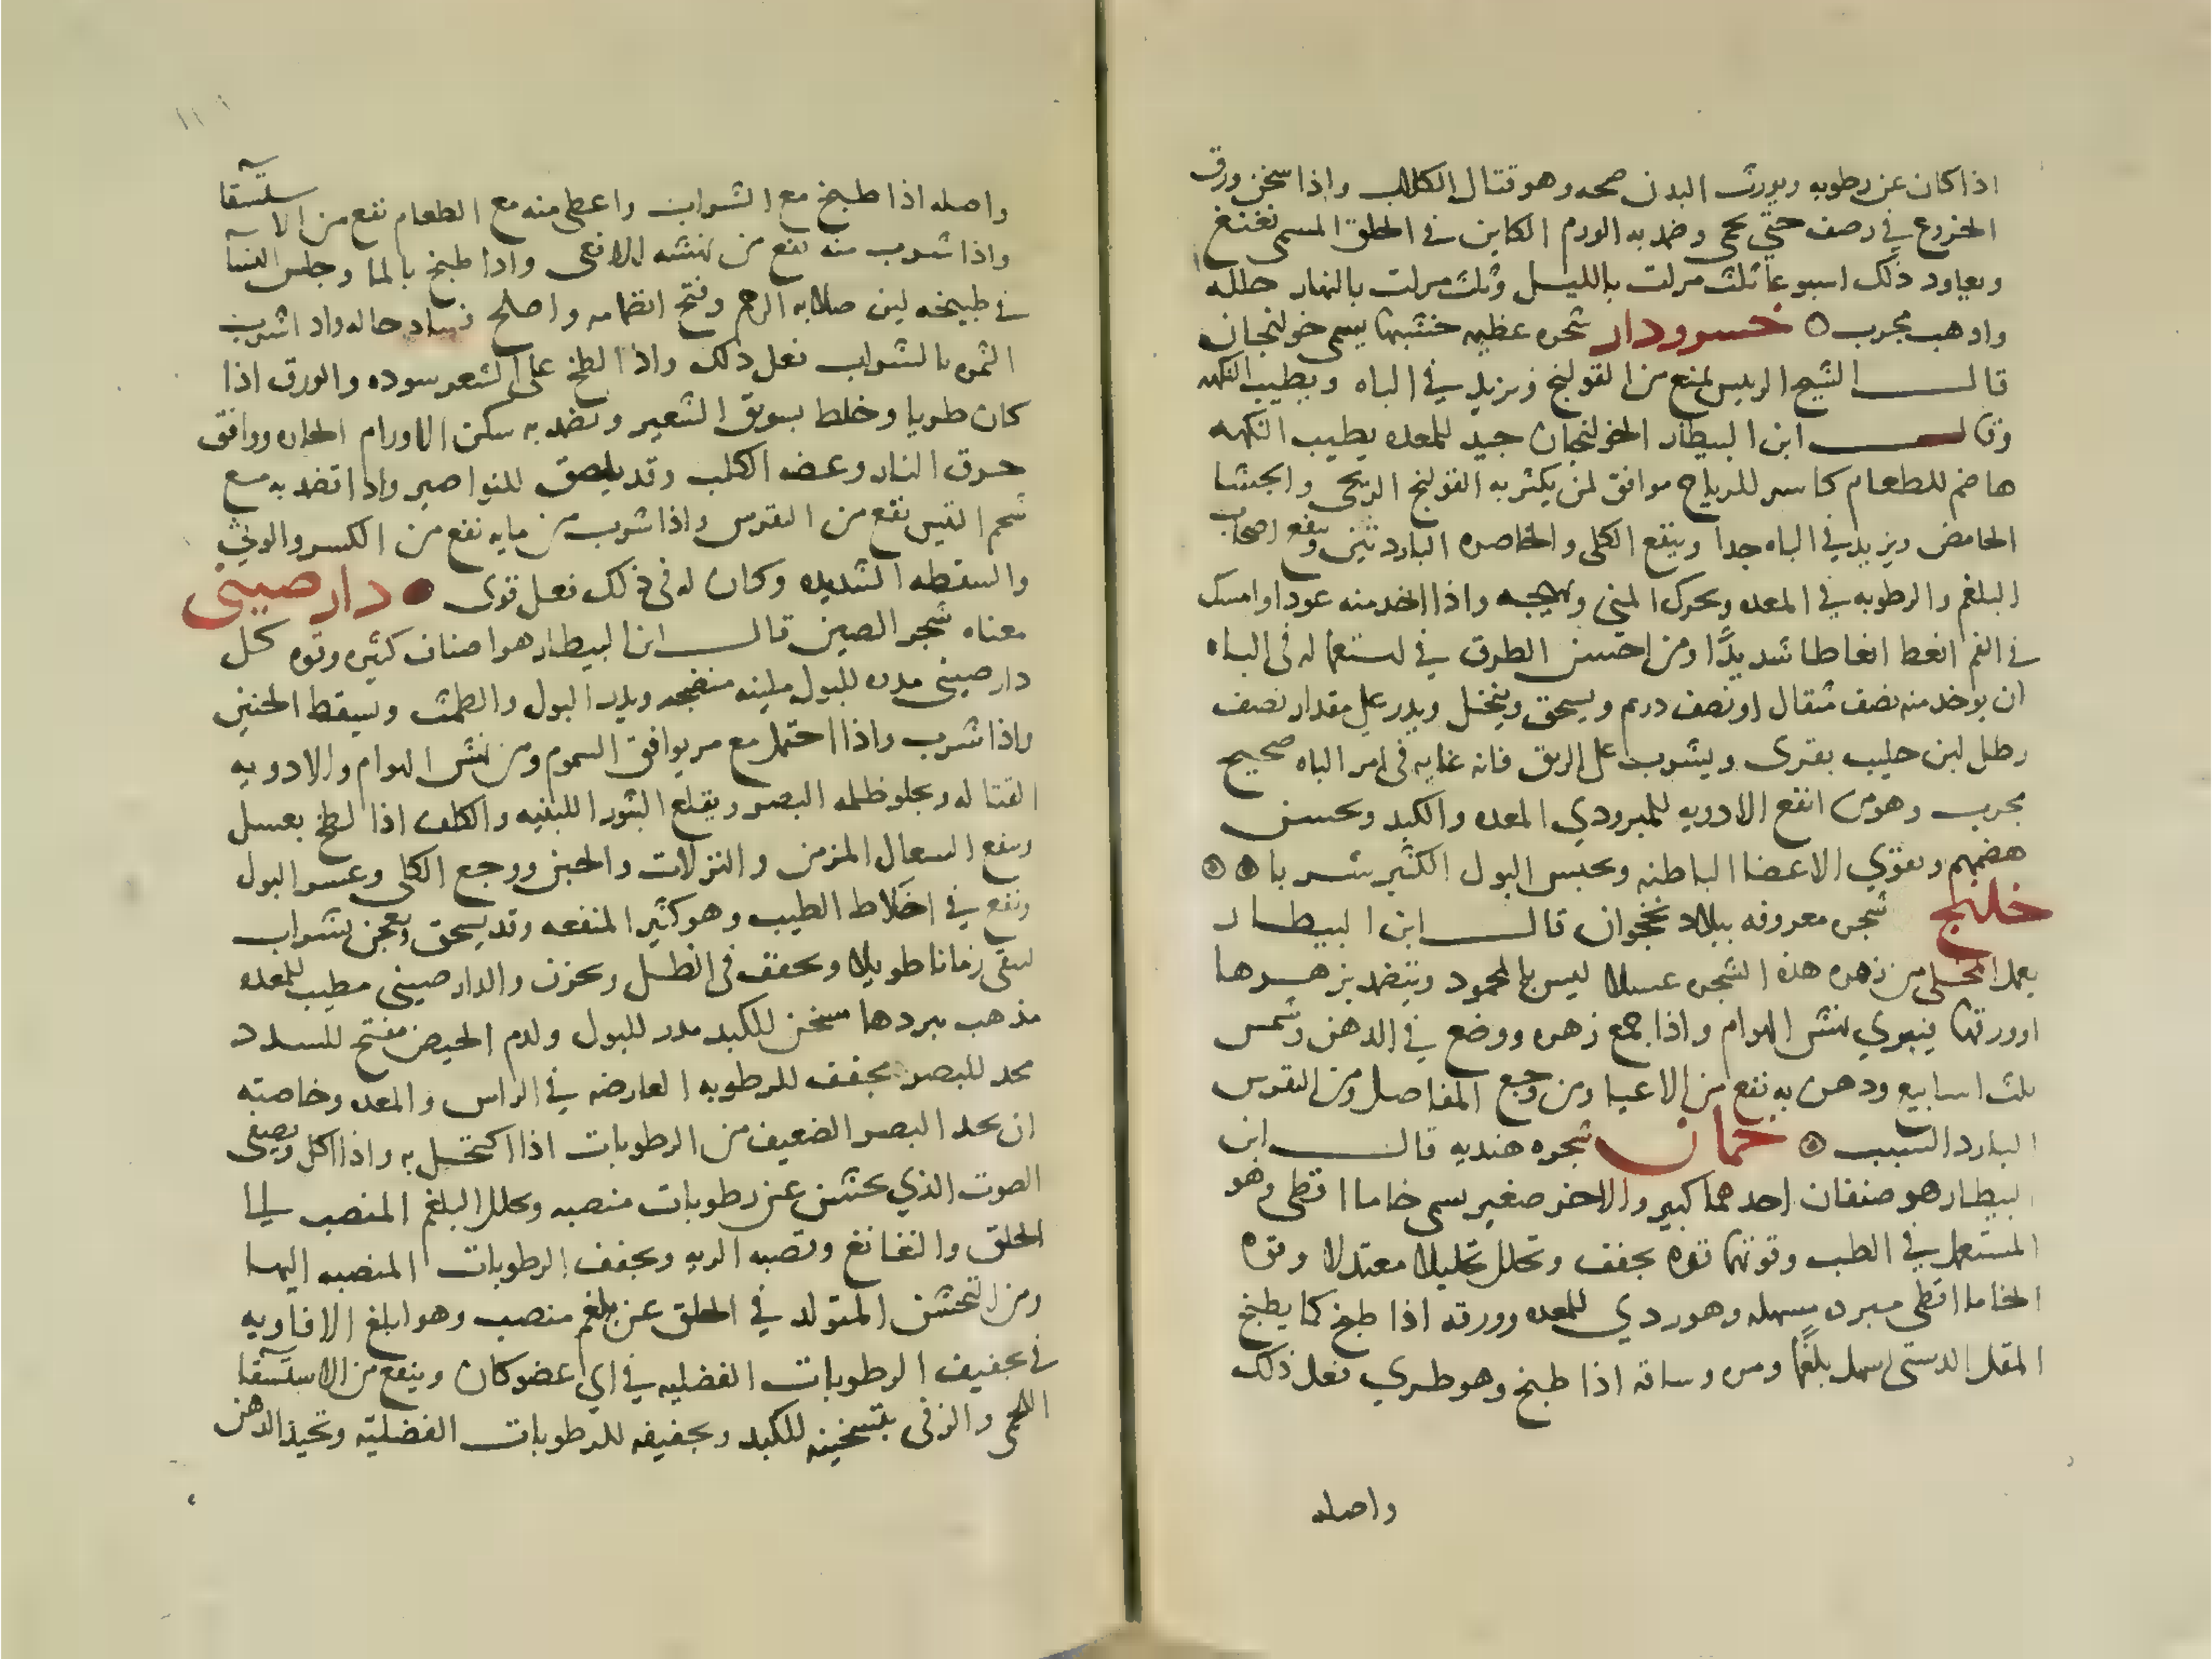 اذا كان عن رطوبه ويورث البدن صحه وهو قتال الكلاب واذا سخن ورق
الخروع في رصف حتي يحمى وضمد به الورم الكاين في الحلق المسمى نغنغ
ويعاود ذلك اسبوعا ثلث مرات بالليل وثلث مرات بالنهار حلله
واذهب مجرب خسرودار شجره عظيمه خشبها يسمى خولنجان
قال الشيخ الرييس ينفع من القولنج ويزيد في الباه ويطيب النكهه
وقال ابن البيطار الخولنجان جيد للمعده يطيب النكهه
هاضم للطعام كاسر للرياح موافق لمن يكثر به القولنج الريحي والجشا
الحامض ويزيد في الباه جدا وينفع الكلى والخاصره الباردتين وينفع اصحاب
البلغم والرطوبه في المعده ويحرك المنى ويهيجه واذا اخذ منه عودا وامسك
في الفم انعظ انعاظا شديدًا ومن احسن الطرق في استعماله في الباه
ان يوخذ منه نصف مثقال او نصف درهم ويسحق وينخل ويدر على مقدار نصف
رطل لبن حليب بقرى ويشرب على الريق فانه غايه في امر الباه صحيح
مجرب وهو من انفع الادويه للمبرودي المعده والكبد ويحسن
هضمهم ويقوي الاعضا الباطنه ويحبس البول الكثير شربا
خلنج شجره معروفه ببلاد نخجوان قال ابن البيطار
يعمل النحل من زهره هذه الشجره عسلا ليس بالمحمود ويتضمد بزهرها
اوورقها ينبري نهش الهوام واذا جمع زهره ووضع في الدهن وشمس
ثلث اسابيع ودهن به نفع من الاعيا ومن وجع المفاصل ومن النقرس
البارد السبب خمان شجره هنديه قال ابن
البيطار هو صنفان احدهما كبير والاخر صغير يسمى خاما اقطى وهو
المستعمل في الطب وقوتها قوه تجفف وتحلل تحليلا معتدلا وقوه
الخاما اقطى مبرده مسهله وهو ردي للمعده وورقه اذا طبخ كما يطبخ
البقل الدستى اسهل بلغمًا ومره وساقه اذا طبخ وهو طري فعل ذلك
واصله
واصله اذا طبخ مع الشراب واعطى منه مع الطعام نفع من الاستسقا
واذا شرب منه نفع من نهشه الافعى واذا طبخ بالما وجلس النسا
في طبيخه لين صلابه الرحم وفتح انضمامه واصلح فساد حاله واذا شرب
الثمره بالشراب فعل ذلك واذا لطخ على الشعر سوده والورق اذا
كان طريا وخلط بسويق الشعير وتضمد به سكن الاورام الحاره ووافق
حرق النار وعضه الكلب وقد يلصق للنواصير واذا تضمد به مع
شحم التيس نفع من النقرس واذا شرب من مايه نفع من الكسر والوثي
والسقطه الشديده وكان له في ذلك فعل قوى دار صيني
معناه شجر الصين قال ابن البيطار هو اصناف كثيره وقوه كل
دارصيني مدره للبول ملينه منضجه ويدر البول والطمث ويسقط الجنين
واذا شرب واذا احتمل مع مر يوافق السموم ومن نهش الهوام والادويه
القتاله ويجلو ظلمه البصر ويقلع البثور اللبنيه والكلف اذا لطخ بعسل
وينفع السعال المزمن والنزلات والحبن ووجع الكلى وعسر البول
وينفع في اخلاط الطيب وهو كثير المنفعه وقد يسحق ويعجن بشراب
ليبقى زمانا طويلا ويجفف في الظل ويخزن والدار صيني مطيب للمعده
مذهب ببردها مسخن للكبد مدر للبول ولدم الحيض مفتح للسدد
محد للبصر مجفف للرطوبه العارضه في الراس والمعده وخاصته
ان يحد البصر الضعيف من الرطوبات اذا اكتحل به واذا اكل ويصفي
الصوت الذي يخشن عن رطوبات منصبه ويحلل البلغم المنصب الى
الحلق والنغانغ وقصبه الريه ويجفف الرطوبات المنصبه اليها
ومن التخشن المتولد في الحلق عن بلغم منصب وهو ابلغ الافاويه
في تجفيف الرطوبات الفضليه في اي عضو كان وينفع من الاستسقا
اللحمي والزقى بتسخينه للكبد وتجفيفه للرطوبات الفضليّه وتحيذ الدهن